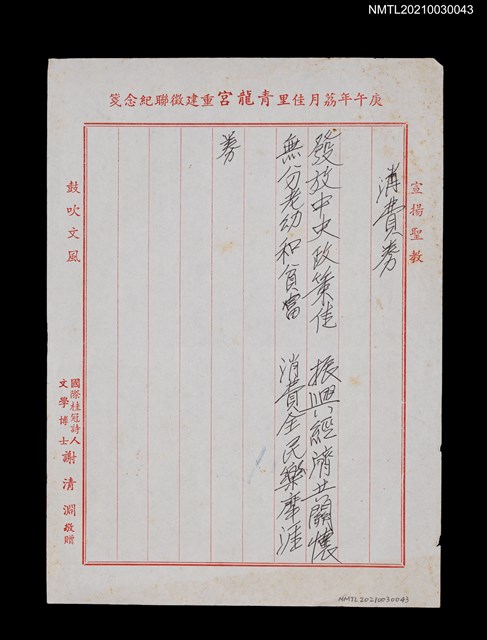 NMTL20210030043
庚午年荔月佳里青龍宮重建徵聯紀念箋
宣揚聖教
消費券
發放中央政策佳 振興經濟共關懷
無分老幼和貧富 消費全民樂庫涯
券
鼓吹文風
國際桂冠詩人
文學博士
謝清淵敬贈
NMTL20210030043